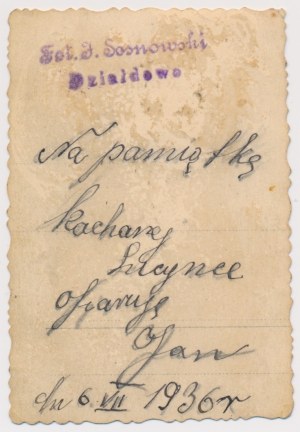 Fot. J. Sosnowski
Działdowo
Na pamiątkę
kochanej
Lucynce
ofiaruję
Jan
dn 6 VII 1936 r